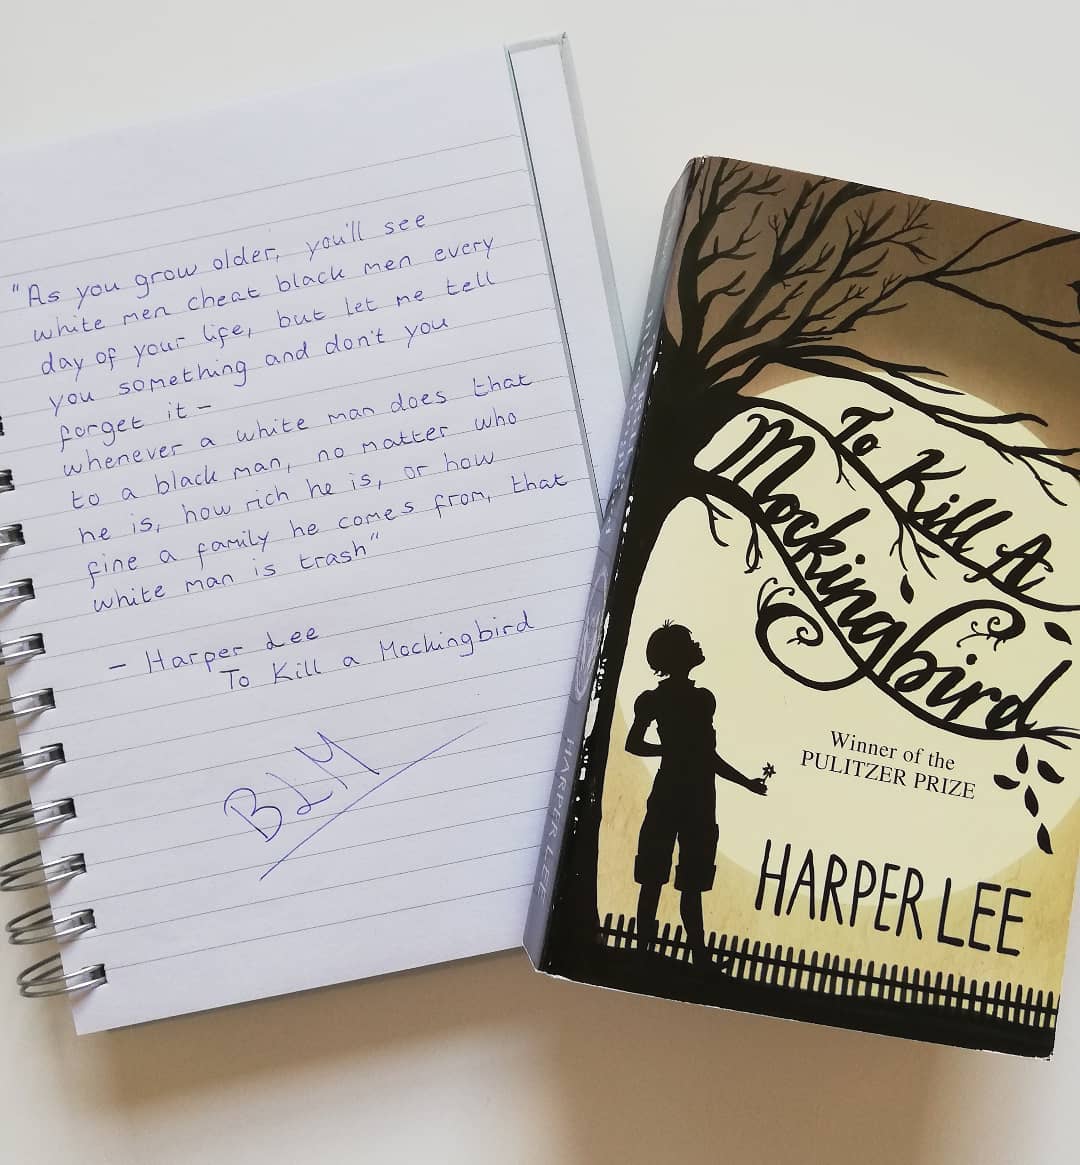 "As you grow older, you'll see
white men cheat black men every
day of your life, but let me tell
you something and don't you
forget it -
whenever a white man does that
to a black man, no matter who
he is, how rich he is, or how
fine a family he comes from, that
white man is trash"
- Harper Lee
To Kill a Mockingbird
BLM
To Kill A
Mockingbird
Winner of the
PULITZER PRIZE
HARPER LEE
HARPER LEE